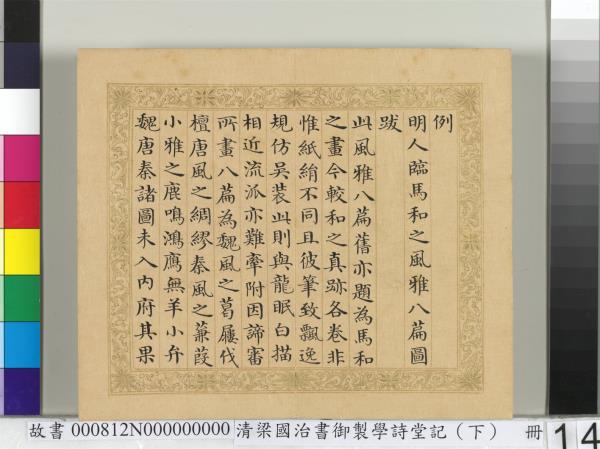 例
明人臨馬和之風雅八篇圖
跋
此風雅八篇舊亦題為馬和
之畫今較和之真跡各卷非
惟紙絹不同且彼筆致飄逸
規仿吳裝此則與龍眠白描
相近流派亦難牽附因諦審
所畫八篇為魏風之葛屨伐
檀唐風之綢繆秦風之蒹葭
小雅之鹿鳴鴻鴈無羊小弁
魏唐秦諸圖未入內府其果
故書000812N000000000 清梁國治書御製學詩堂記（下） 冊 14